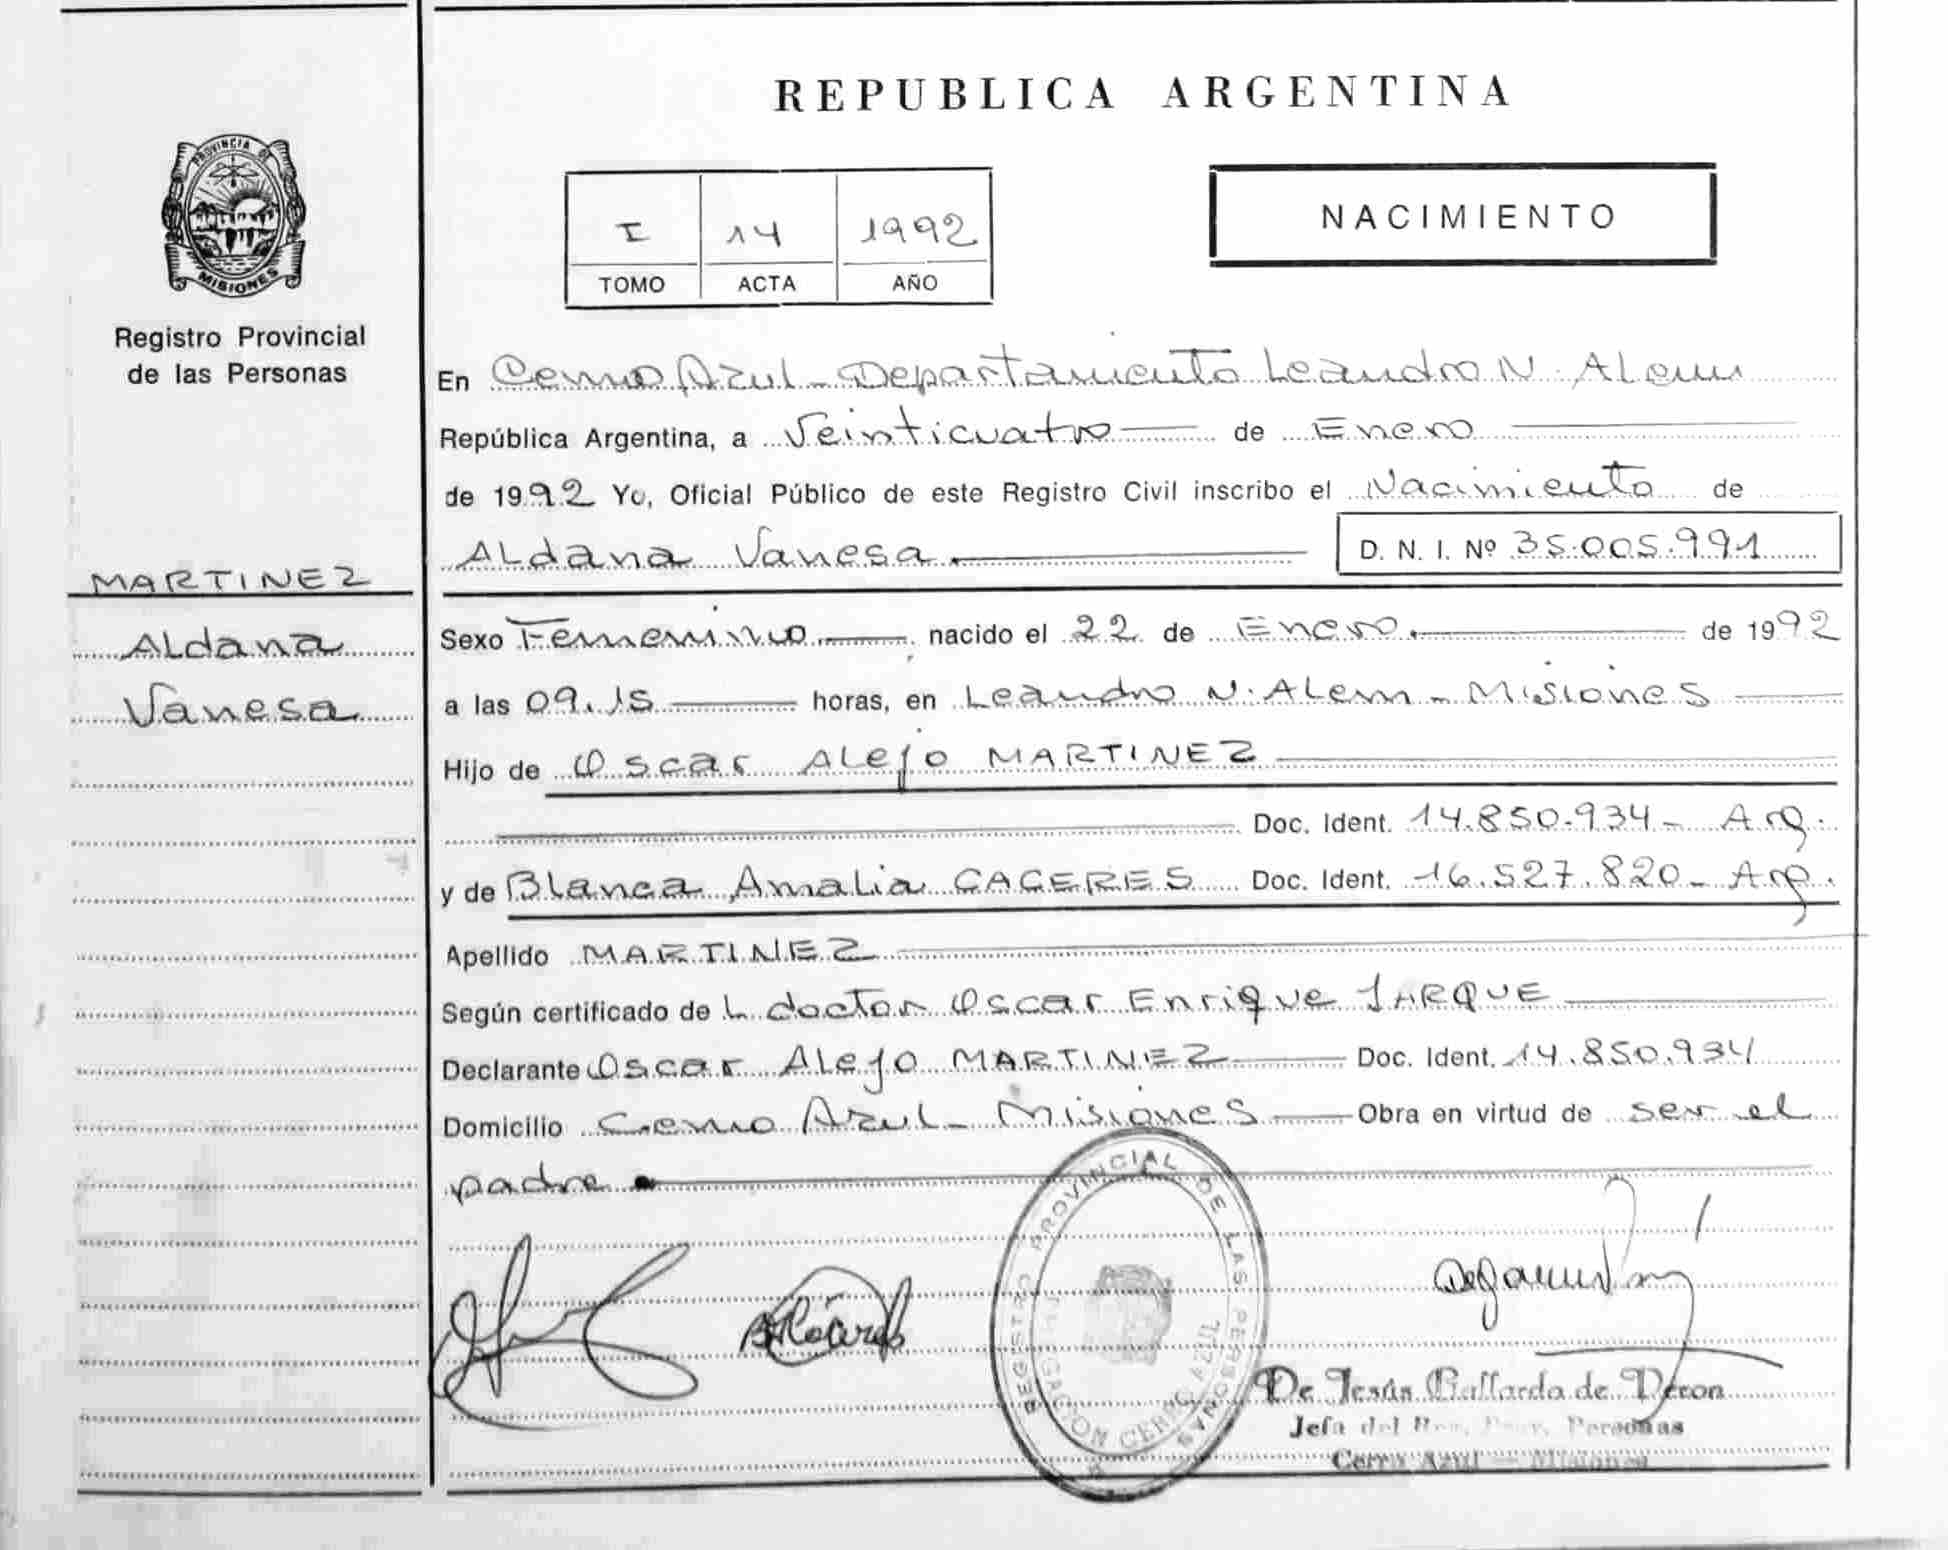 REPUBLICA ARGENTINA
PROVINCIA DE
MISIONES
Registro Provincial
de las Personas
I 14 1992
TOMO ACTA AÑO
NACIMIENTO
En Cerro Azul - Departamento Leandro N. Alem
República Argentina, a Veinticuatro de Enero
de 1992 Yo, Oficial Público de este Registro Civil inscribo el Nacimiento de
Aldana Vanesa D. N. I. Nº 35.005.991
MARTINEZ
Aldana
Vanesa
Sexo Femenino nacido el 22 de Enero de 1992
a las 09.15 horas, en Leandro N. Alem - Misiones
Hijo de Oscar Alejo MARTINEZ
Doc. Ident. 14.850.934 - Arg.
y de Blanca Amalia CACERES Doc. Ident. 16.527.820 - Arg.
Apellido MARTINEZ
Según certificado de L doctor Oscar Enrique JARQUE
Declarante Oscar Alejo MARTINEZ Doc. Ident. 14.850.934
Domicilio Cerro Azul - Misiones Obra en virtud de ser el
padre
REGISTRO PROVINCIAL DE LAS PERSONAS
CERRO AZUL
De Jesús Gallardo de
Jefa del Personas
Cerro Azul - Misiones